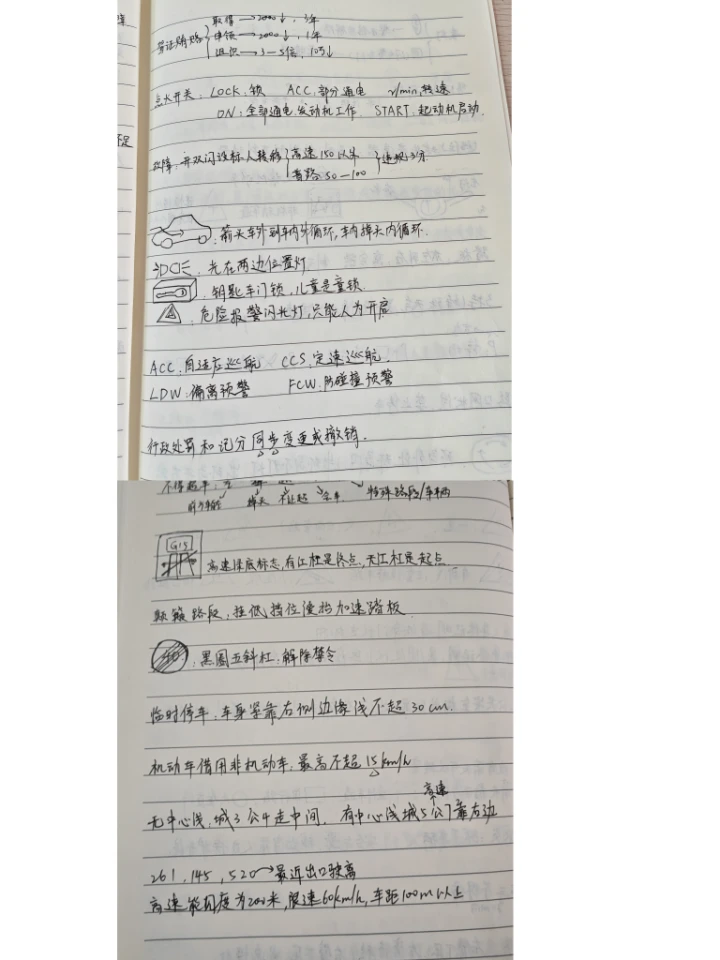 取得→2000↓, 3年
考证贿赂 申领→2000↓, 1年
组织→3-5倍, 10万↓
点火开关: LOCK:锁 ACC:部分通电 r/min:转速
ON:全部通电,发动机工作 START:起动机启动.
故障:开双闪设标人转移 高速150以外 违规3分
普路:50—100
:箭头车外到车内外循环,车内掉头内循环.
:光在两边位置灯
:钥匙车门锁,儿童是童锁.
:危险报警闪光灯,只能人为开启
ACC:自适应巡航 CCS:定速巡航
LDW:偏离预警 FCW:防碰撞预警
行政处罚和记分同步变更或撤销.
不得超车:
掉头 不让超 会车 特殊路段/车辆
G15
高速绿底标志,有红杠是终点,无红杠是起点
颠簸路段,挂低挡位缓抬加速踏板
40 :黑圈五斜杠:解除禁令
临时停车:车身紧靠右侧边缘线不超30cm.
机动车借用非机动车:最高不超15km/h
高速
无中心线,城3公4走中间. 有中心线城5公7靠右边
261, 145, 520→最近出口驶离
高速能见度为200米,限速60km/h,车距100m以上